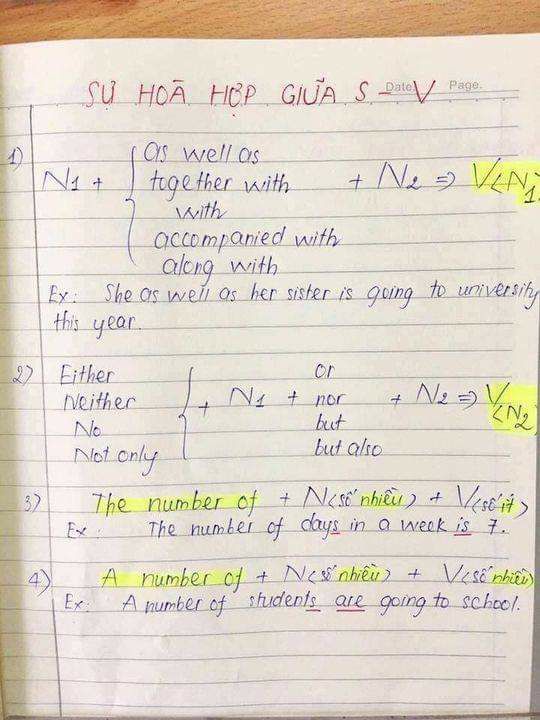 Date. Page.
SỰ HOÀ HỢP GIỮA S - V
1)
as well as
N1 + together with + N2 => V<N1>
with
accompanied with
along with
Ex: She as well as her sister is going to university
this year.
2) Either or
Neither + N1 + nor + N2 => V<N2>
No but
Not only but also
3) The number of + N<số nhiều> + V<số ít>
Ex: The number of days in a week is 7.
4) A number of + N<số nhiều> + V<số nhiều>
Ex: A number of students are going to school.